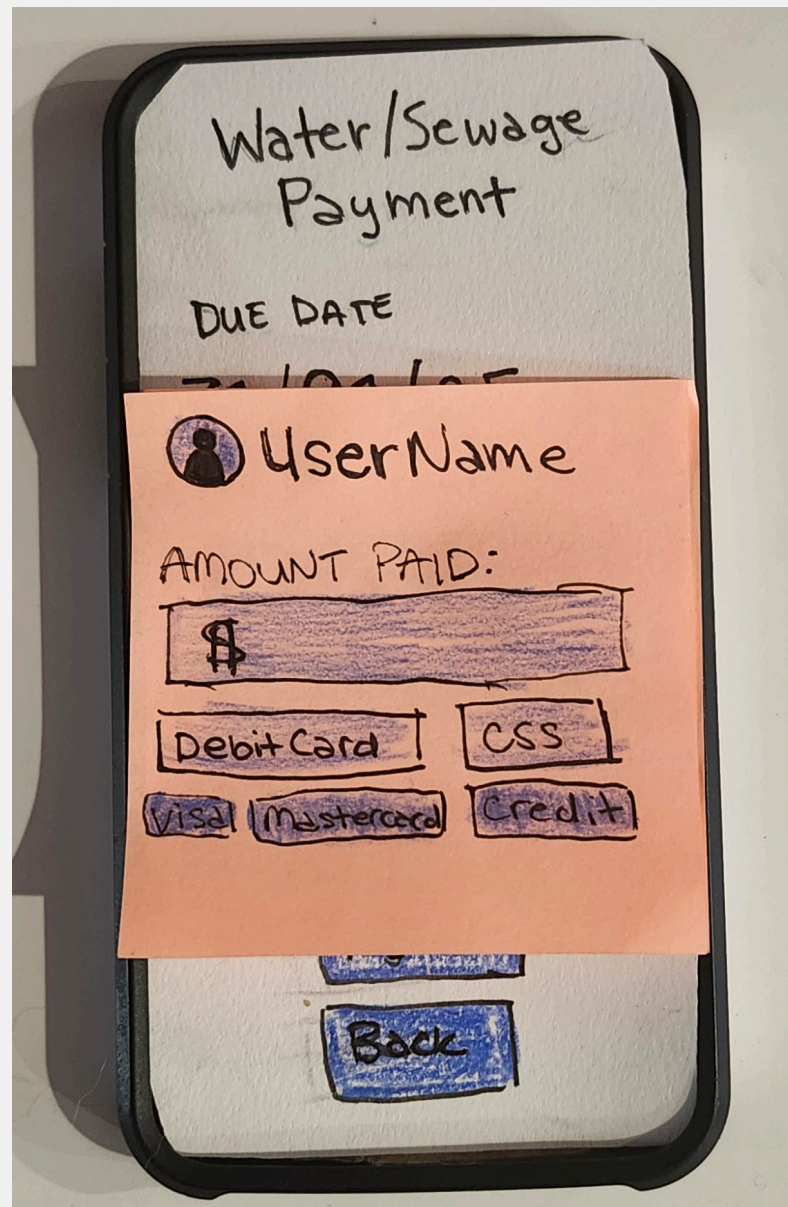 Water/Sewage
Payment
DUE DATE
UserName
AMOUNT PAID:
$
Debit Card CSS
Visa Mastercard Credit
Back